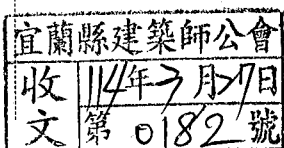 宜蘭縣建築師公會
收文
114年3月27日
第0182號